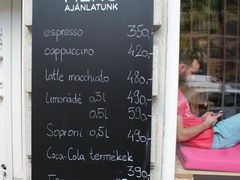 AJÁNLATUNK
espresso 350,-
cappuccino 420,-
Latte macchiato 480,-
Limonádé 0,3l 490,-
0,5l 590,-
Soproni 0,5l 490,-
Coca-Cola termékek
390,-